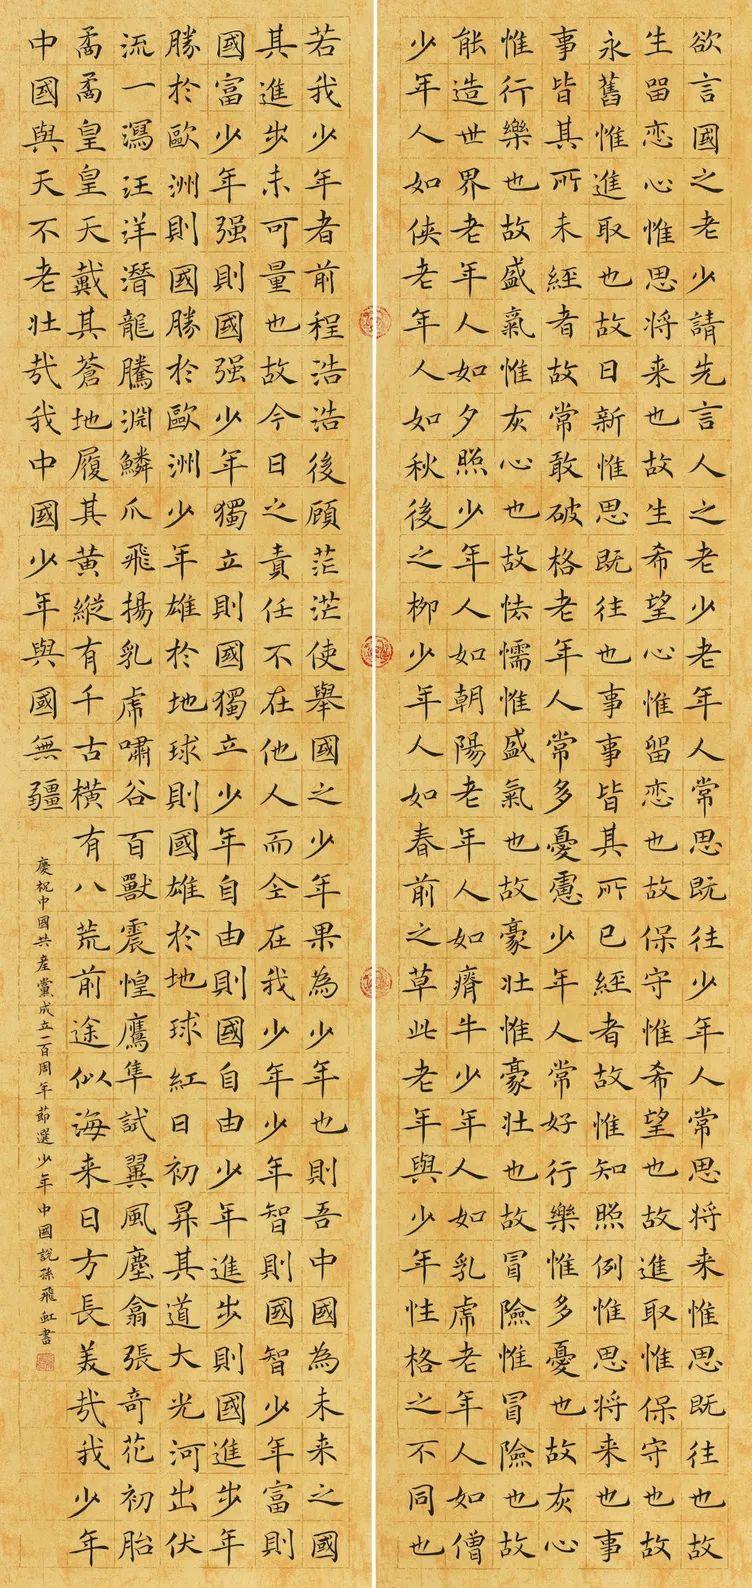 欲言國之老少請先言人之老少老年人常思既往少年人常思将来惟思既往也故
生留恋心惟思将来也故生希望心惟留恋也故保守惟希望也故進取惟保守也故
永舊惟進取也故日新惟思既往也事事皆其所已經者故惟知照例惟思将来也事
事皆其所未經者故常敢破格老年人常多憂慮少年人常好行樂惟多憂也故灰心
惟行樂也故盛氣惟灰心也故怯懦惟盛氣也故豪壮惟豪壮也故冒險惟冒險也故
能造世界老年人如夕照少年人如朝陽老年人如瘠牛少年人如乳虎老年人如僧
少年人如俠老年人如秋後之柳少年人如春前之草此老年與少年性格之不同也
若我少年者前程浩浩後顧茫茫使舉國之少年果為少年也則吾中國為未来之國
其進步未可量也故今日之責任不在他人而全在我少年少年智則國智少年富則
國富少年强則國强少年獨立則國獨立少年自由則國自由少年進步則國進步年
勝於歐洲則國勝於歐洲少年雄於地球則國雄於地球紅日初昇其道大光河出伏
流一瀉汪洋潛龍騰淵鱗爪飛揚乳虎嘯谷百獸震惶鷹隼試翼風塵翕張奇花初胎
矞矞皇皇天戴其蒼地履其黄縱有千古横有八荒前途似海来日方長美哉我少年
中國與天不老壮哉我中國少年與國無疆
慶祝中國共産黨成立一百周年節選少年中國説孫飛虹書